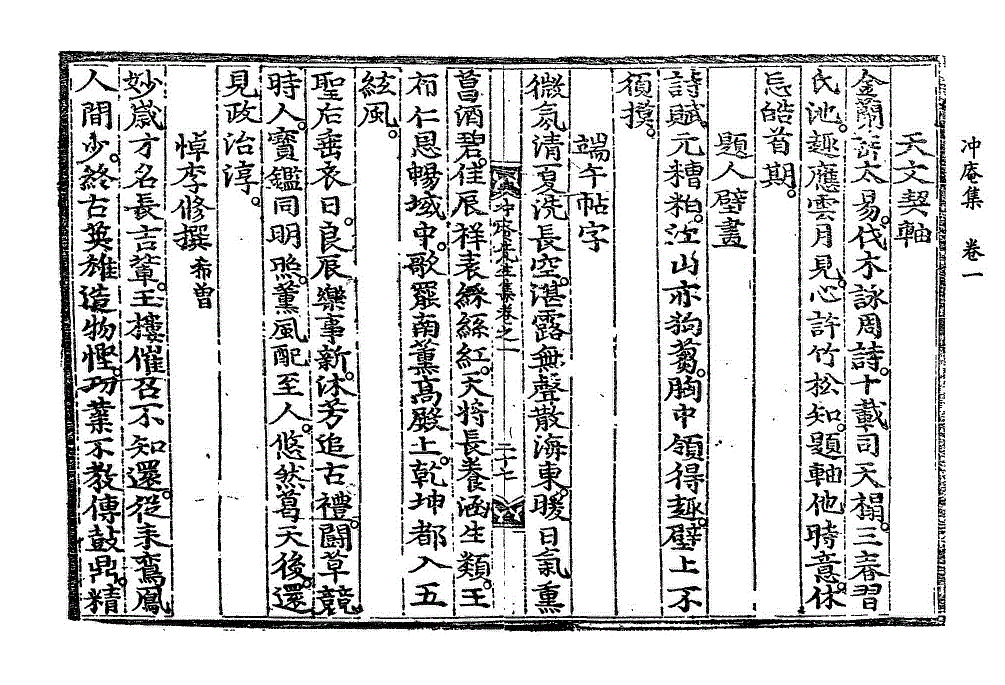 冲庵集 卷一
天文契軸
金蘭許太易。伐木詠周詩。十載司天榻。三春習
氏池。趣應雲月見。心許竹松知。題軸他時意。休
忘皓首期。
題人壁畫
詩賦元糟粕。江山亦狗蒭。胸中領得趣。壁上不
須摸。
端午帖字
微氛清夏洗長空。湛露無聲散海東。暖日氣熏
冲庵先生集卷之一 二十七
菖酒碧。佳辰祥表綵絲紅。天將長養涵生類。王
布仁恩暢域中。歌罷南薰高殿上。乾坤都入五
絃風。
聖后垂衣日。良辰樂事新。沐芳追古禮。鬪草競
時人。寶鑑同明照。薰風配至人。悠然葛天後。還
見政治淳。
悼李修撰 希曾
妙歲才名長吉輩。玉樓催召不知還。從来鸞鳳
人間少。終古英雄造物慳。功業不敎傳鼓鼎。精